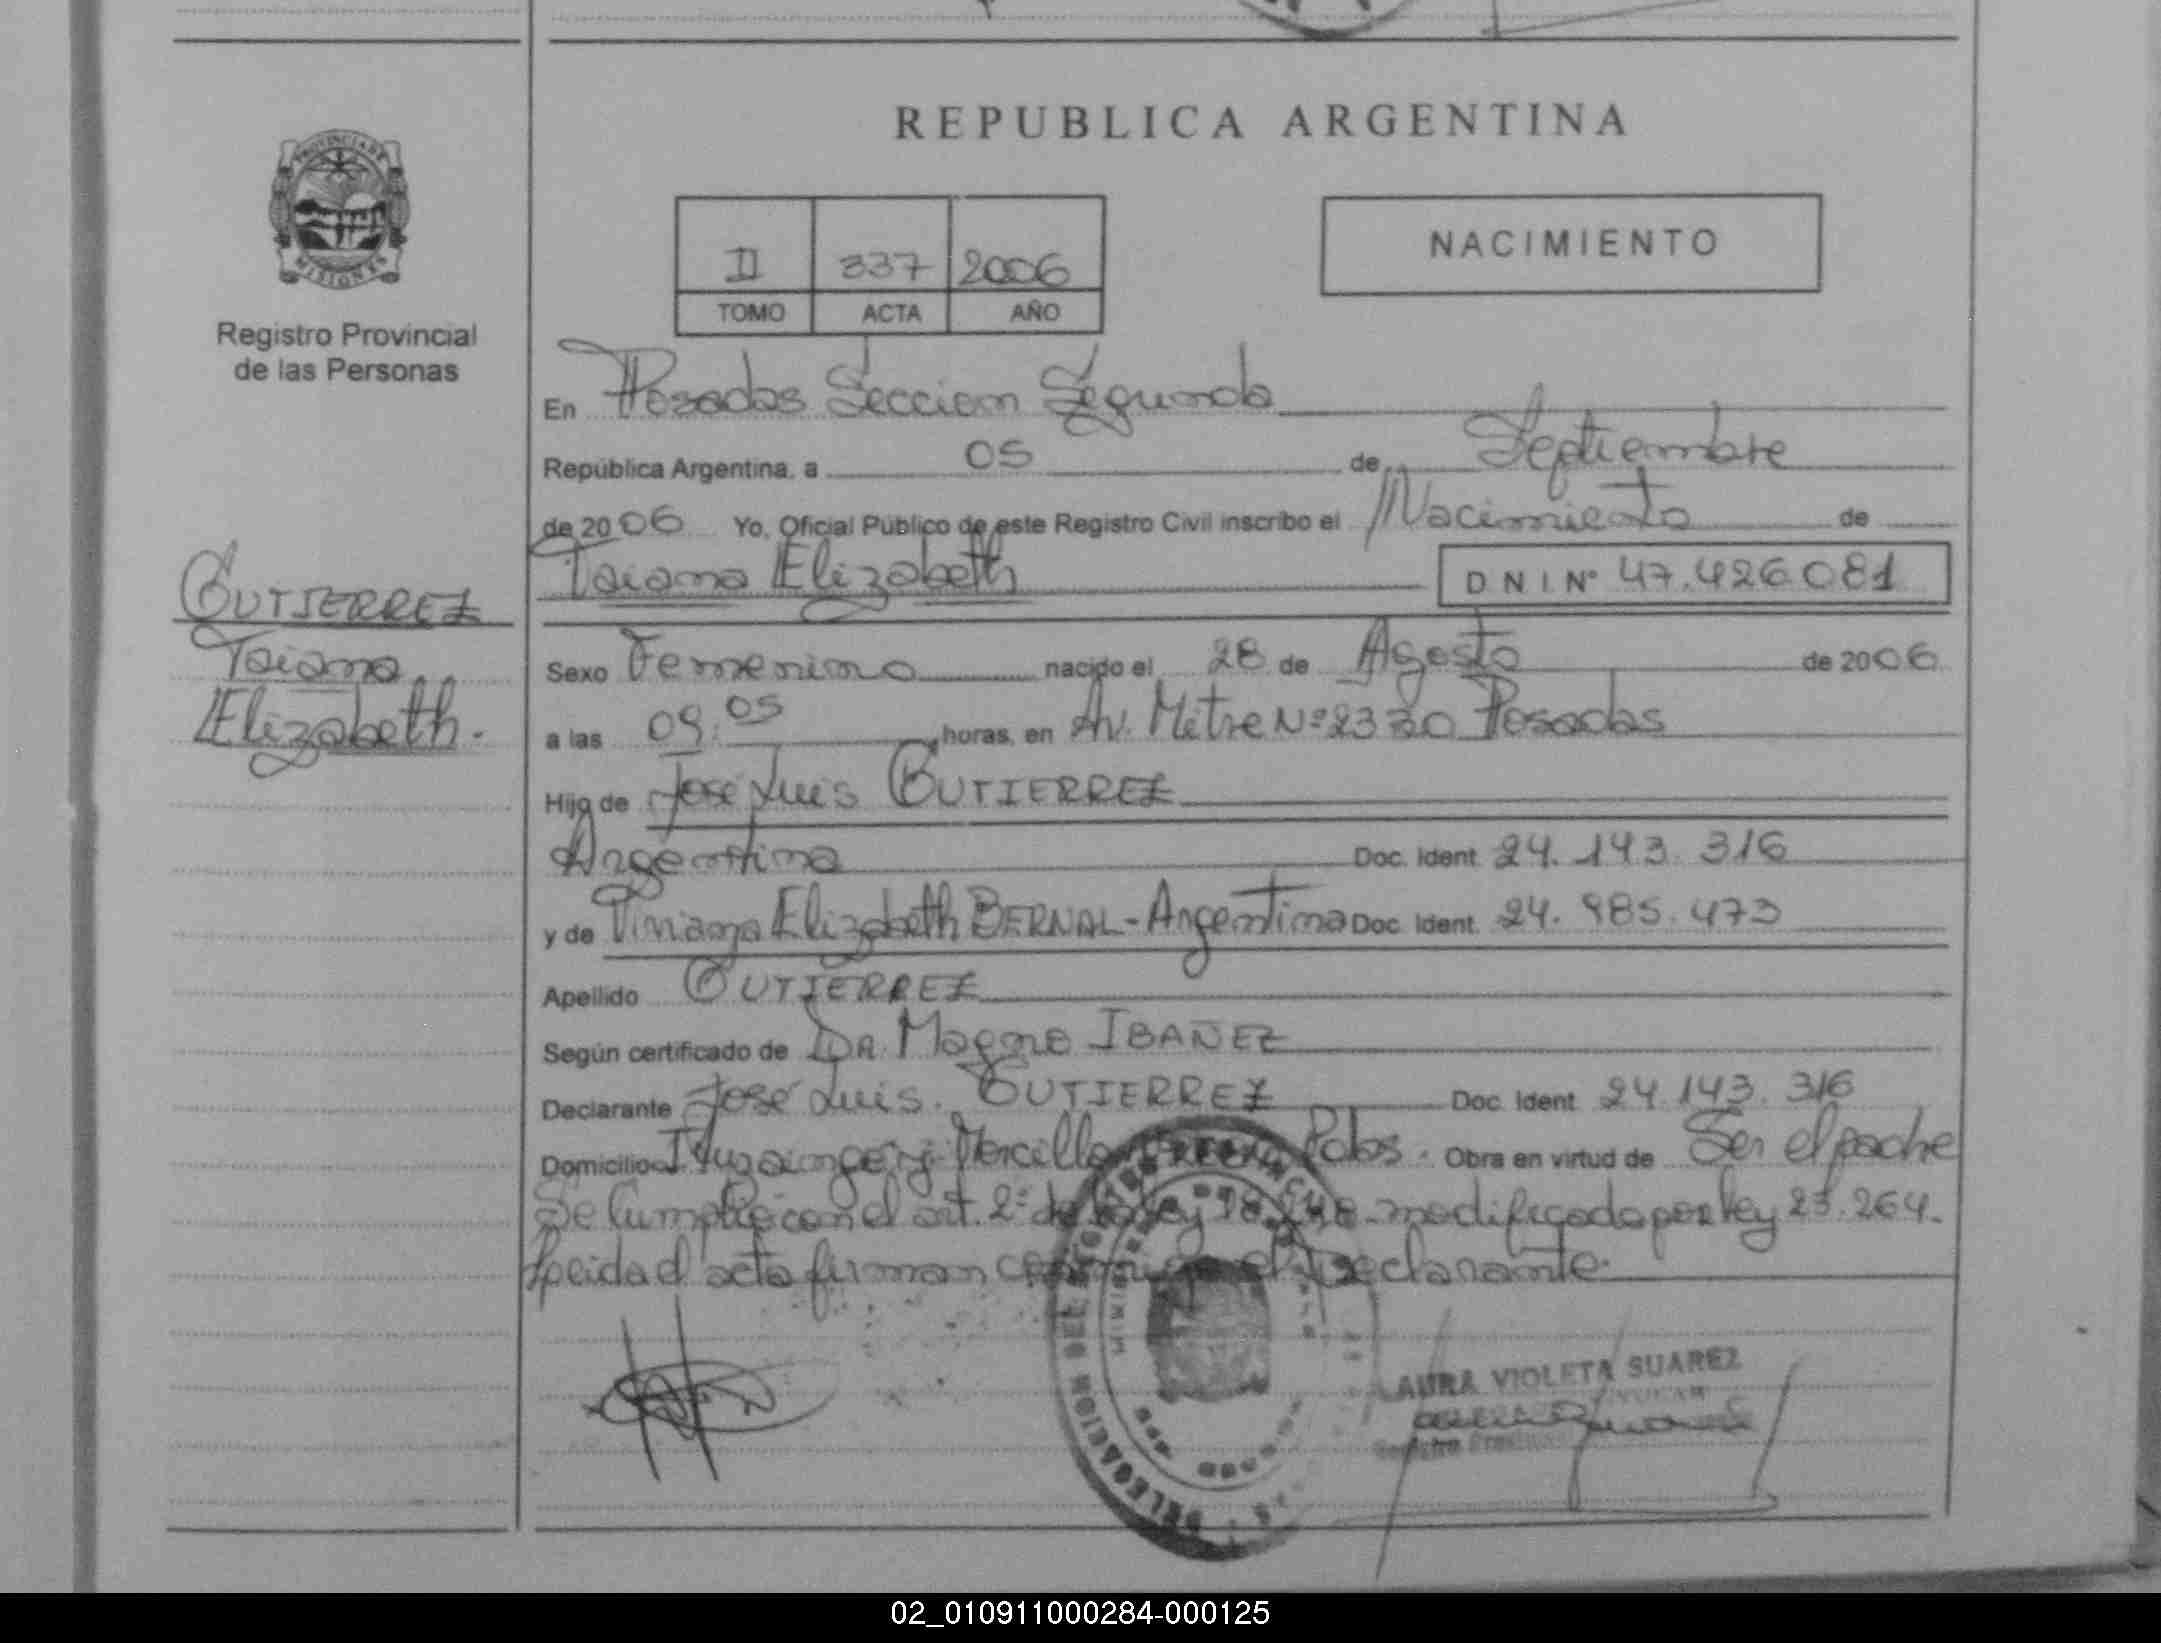 REPUBLICA ARGENTINA
PROVINCIA DE
MISIONES
Registro Provincial
de las Personas
II 337 2006
TOMO ACTA AÑO
NACIMIENTO
En Posadas Seccion Segunda
República Argentina, a 05 de Septiembre
de 2006 Yo, Oficial Público de este Registro Civil inscribo el Nacimiento de
Taiana Elizabeth DNI Nº 47.426.081
GUTIERREZ
Taiana
Elizabeth.
Sexo Femenino nacido el 28 de Agosto de 2006
a las 09:05 horas, en Av. Mitre Nº 2330 Posadas
Hijo de José Luis GUTIERREZ
Argentina Doc. Ident. 24.143.316
y de Viviana Elizabeth BERNAL - Argentina Doc. Ident. 24.985.473
Apellido GUTIERREZ
Según certificado de DR. Magno IBAÑEZ
Declarante José Luis GUTIERREZ Doc. Ident. 24.143.316
Domicilio Ituzaingo y Pdas. Obra en virtud de Ser el padre
Se Cumplio con el art. 2º de la ley 18.248 modificada por ley 23.264.
Leida el acta firman conmigo el Declarante.
DELEGACION DEL REGISTRO
LAURA VIOLETA SUAREZ
02_010911000284-000125